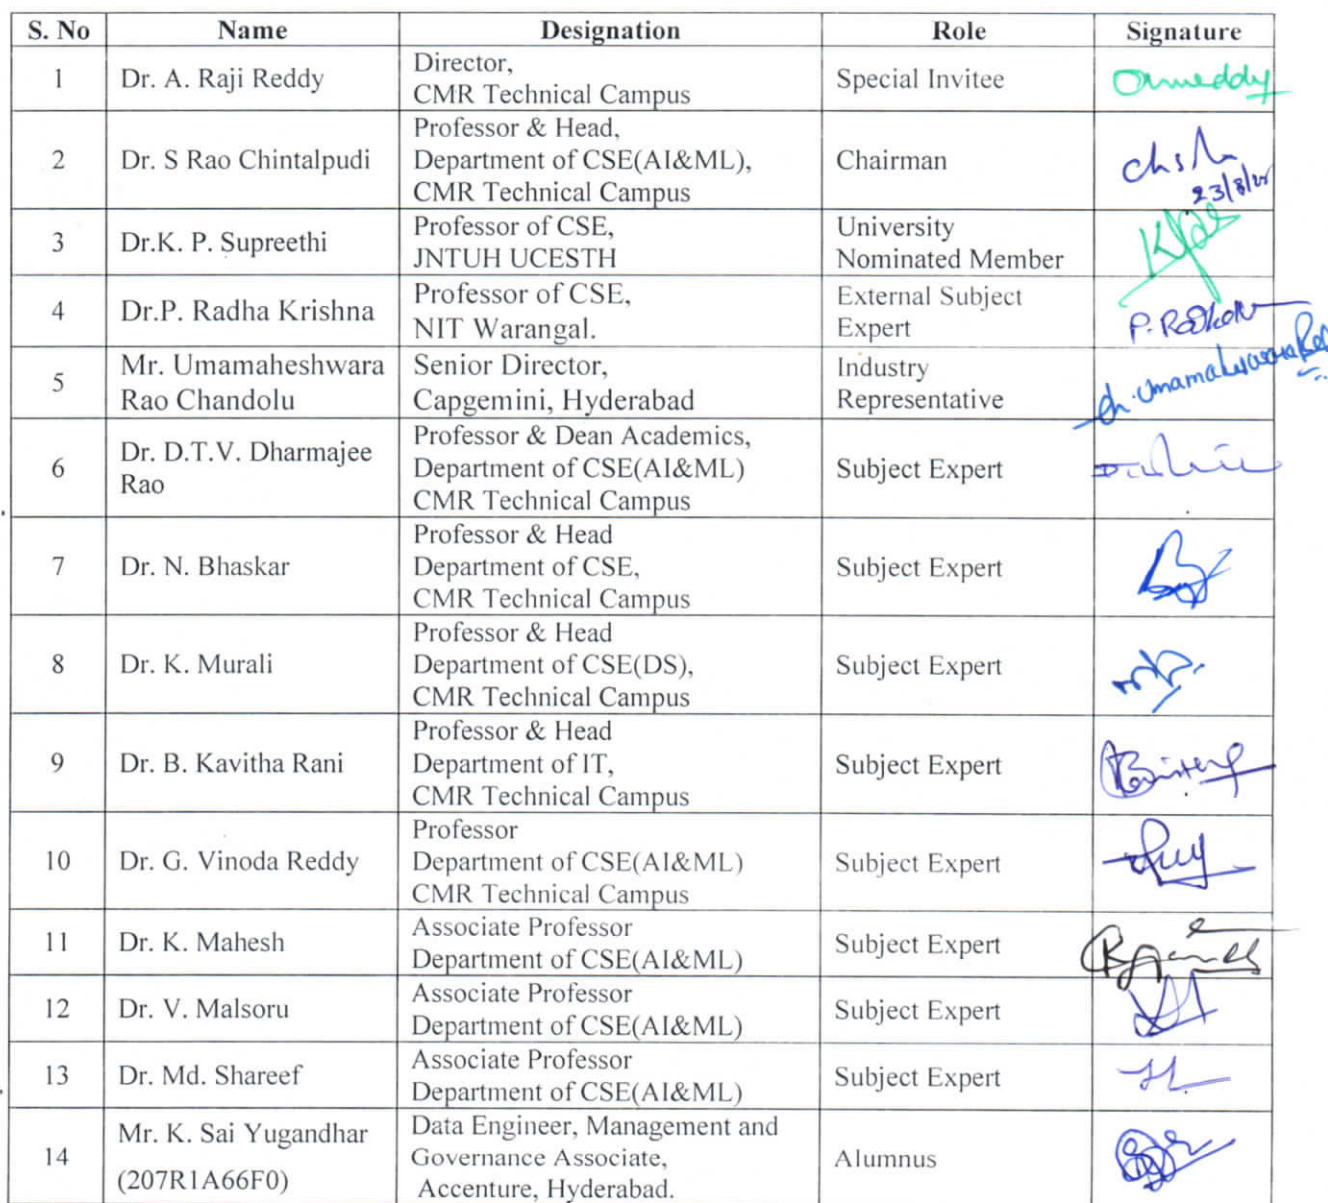 S. No Name Designation Role Signature
1 Dr. A. Raji Reddy Director,
CMR Technical Campus Special Invitee
2 Dr. S Rao Chintalpudi Professor & Head,
Department of CSE(AI&ML),
CMR Technical Campus Chairman
3 Dr.K. P. Supreethi Professor of CSE,
JNTUH UCESTH University
Nominated Member
4 Dr.P. Radha Krishna Professor of CSE,
NIT Warangal. External Subject
Expert
5 Mr. Umamaheshwara
Rao Chandolu Senior Director,
Capgemini, Hyderabad Industry
Representative
6 Dr. D.T.V. Dharmajee
Rao Professor & Dean Academics,
Department of CSE(AI&ML)
CMR Technical Campus Subject Expert
7 Dr. N. Bhaskar Professor & Head
Department of CSE,
CMR Technical Campus Subject Expert
8 Dr. K. Murali Professor & Head
Department of CSE(DS),
CMR Technical Campus Subject Expert
9 Dr. B. Kavitha Rani Professor & Head
Department of IT,
CMR Technical Campus Subject Expert
10 Dr. G. Vinoda Reddy Professor
Department of CSE(AI&ML)
CMR Technical Campus Subject Expert
11 Dr. K. Mahesh Associate Professor
Department of CSE(AI&ML) Subject Expert
12 Dr. V. Malsoru Associate Professor
Department of CSE(AI&ML) Subject Expert
13 Dr. Md. Shareef Associate Professor
Department of CSE(AI&ML) Subject Expert
14 Mr. K. Sai Yugandhar
(207R1A66F0) Data Engineer, Management and
Governance Associate,
Accenture, Hyderabad. Alumnus